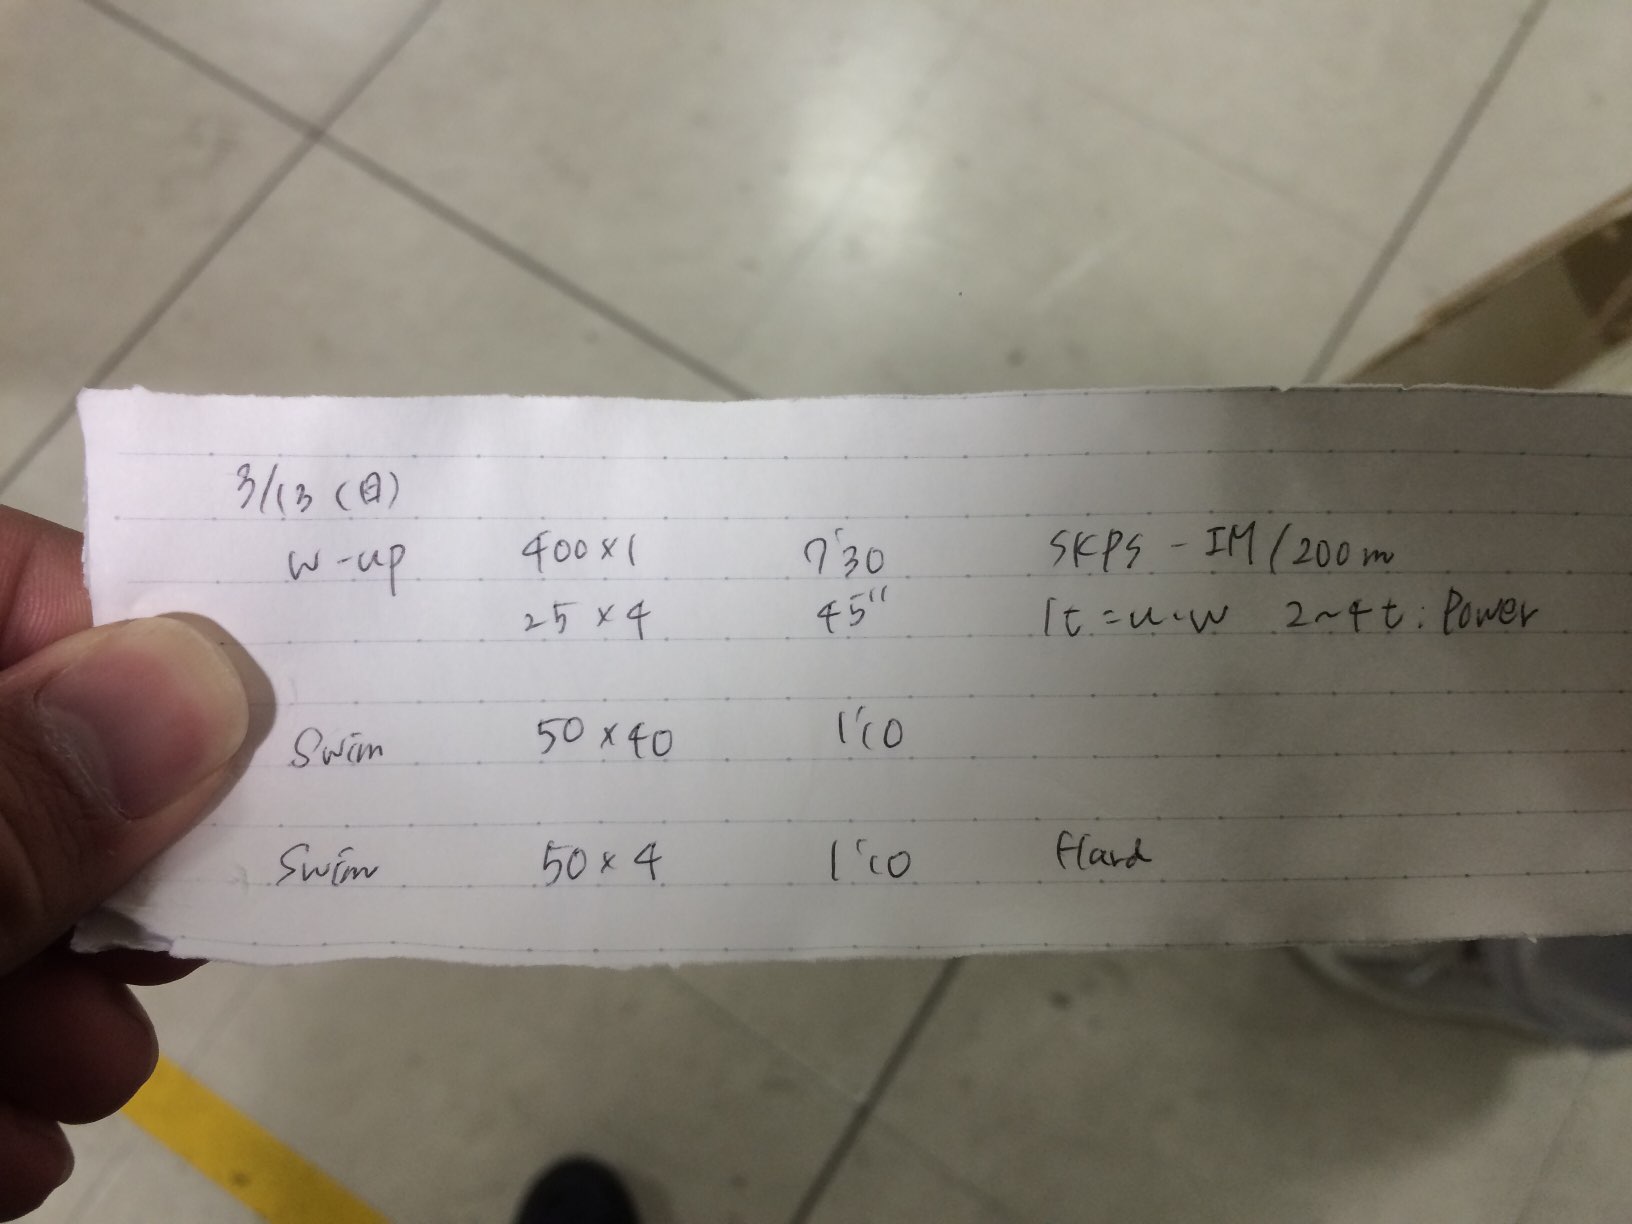 3/13 (日)
W-up 400×1 7'30 SKPS - IM/200m
25×4 45" 1t=u.w 2~4t: Power
Swim 50×40 1'10
Swim 50×4 1'10 Hard